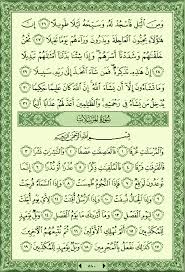 وَمِنَ ٱلَّيۡلِ فَٱسۡجُدۡ لَهُۥ وَسَبِّحۡهُ لَيۡلٗا طَوِيلًا ٢٦ إِنَّ
هَٰٓؤُلَآءِ يُحِبُّونَ ٱلۡعَاجِلَةَ وَيَذَرُونَ وَرَآءَهُمۡ يَوۡمٗا ثَقِيلٗا ٢٧ نَّحۡنُ
خَلَقۡنَٰهُمۡ وَشَدَدۡنَآ أَسۡرَهُمۡۖ وَإِذَا شِئۡنَا بَدَّلۡنَآ أَمۡثَٰلَهُمۡ تَبۡدِيلًا
٢٨ إِنَّ هَٰذِهِۦ تَذۡكِرَةٞۖ فَمَن شَآءَ ٱتَّخَذَ إِلَىٰ رَبِّهِۦ سَبِيلٗا ٢٩
وَمَا تَشَآءُونَ إِلَّآ أَن يَشَآءَ ٱللَّهُۚ إِنَّ ٱللَّهَ كَانَ عَلِيمًا حَكِيمٗا ٣٠
يُدۡخِلُ مَن يَشَآءُ فِي رَحۡمَتِهِۦۚ وَٱلظَّٰلِمِينَ أَعَدَّ لَهُمۡ عَذَابًا أَلِيمَۢا ٣١
سُورَةُ المُرۡسَلَاتِ
بِسۡمِ ٱللَّهِ ٱلرَّحۡمَٰنِ ٱلرَّحِيمِ
وَٱلۡمُرۡسَلَٰتِ عُرۡفٗا ١ فَٱلۡعَٰصِفَٰتِ عَصۡفٗا ٢ وَٱلنَّٰشِرَٰتِ نَشۡرٗا
٣ فَٱلۡفَٰرِقَٰتِ فَرۡقٗا ٤ فَٱلۡمُلۡقِيَٰتِ ذِكۡرًا ٥ عُذۡرًا أَوۡ نُذۡرًا ٦
إِنَّمَا تُوعَدُونَ لَوَٰقِعٞ ٧ فَإِذَا ٱلنُّجُومُ طُمِسَتۡ ٨ وَإِذَا ٱلسَّمَآءُ فُرِجَتۡ
٩ وَإِذَا ٱلۡجِبَالُ نُسِفَتۡ ١٠ وَإِذَا ٱلرُّسُلُ أُقِّتَتۡ ١١ لِأَيِّ يَوۡمٍ أُجِّلَتۡ
١٢ لِيَوۡمِ ٱلۡفَصۡلِ ١٣ وَمَآ أَدۡرَىٰكَ مَا يَوۡمُ ٱلۡفَصۡلِ ١٤ وَيۡلٞ يَوۡمَئِذٖ
لِّلۡمُكَذِّبِينَ ١٥ أَلَمۡ نُهۡلِكِ ٱلۡأَوَّلِينَ ١٦ ثُمَّ نُتۡبِعُهُمُ ٱلۡأٓخِرِينَ
١٧ كَذَٰلِكَ نَفۡعَلُ بِٱلۡمُجۡرِمِينَ ١٨ وَيۡلٞ يَوۡمَئِذٖ لِّلۡمُكَذِّبِينَ ١٩
٥٨٠